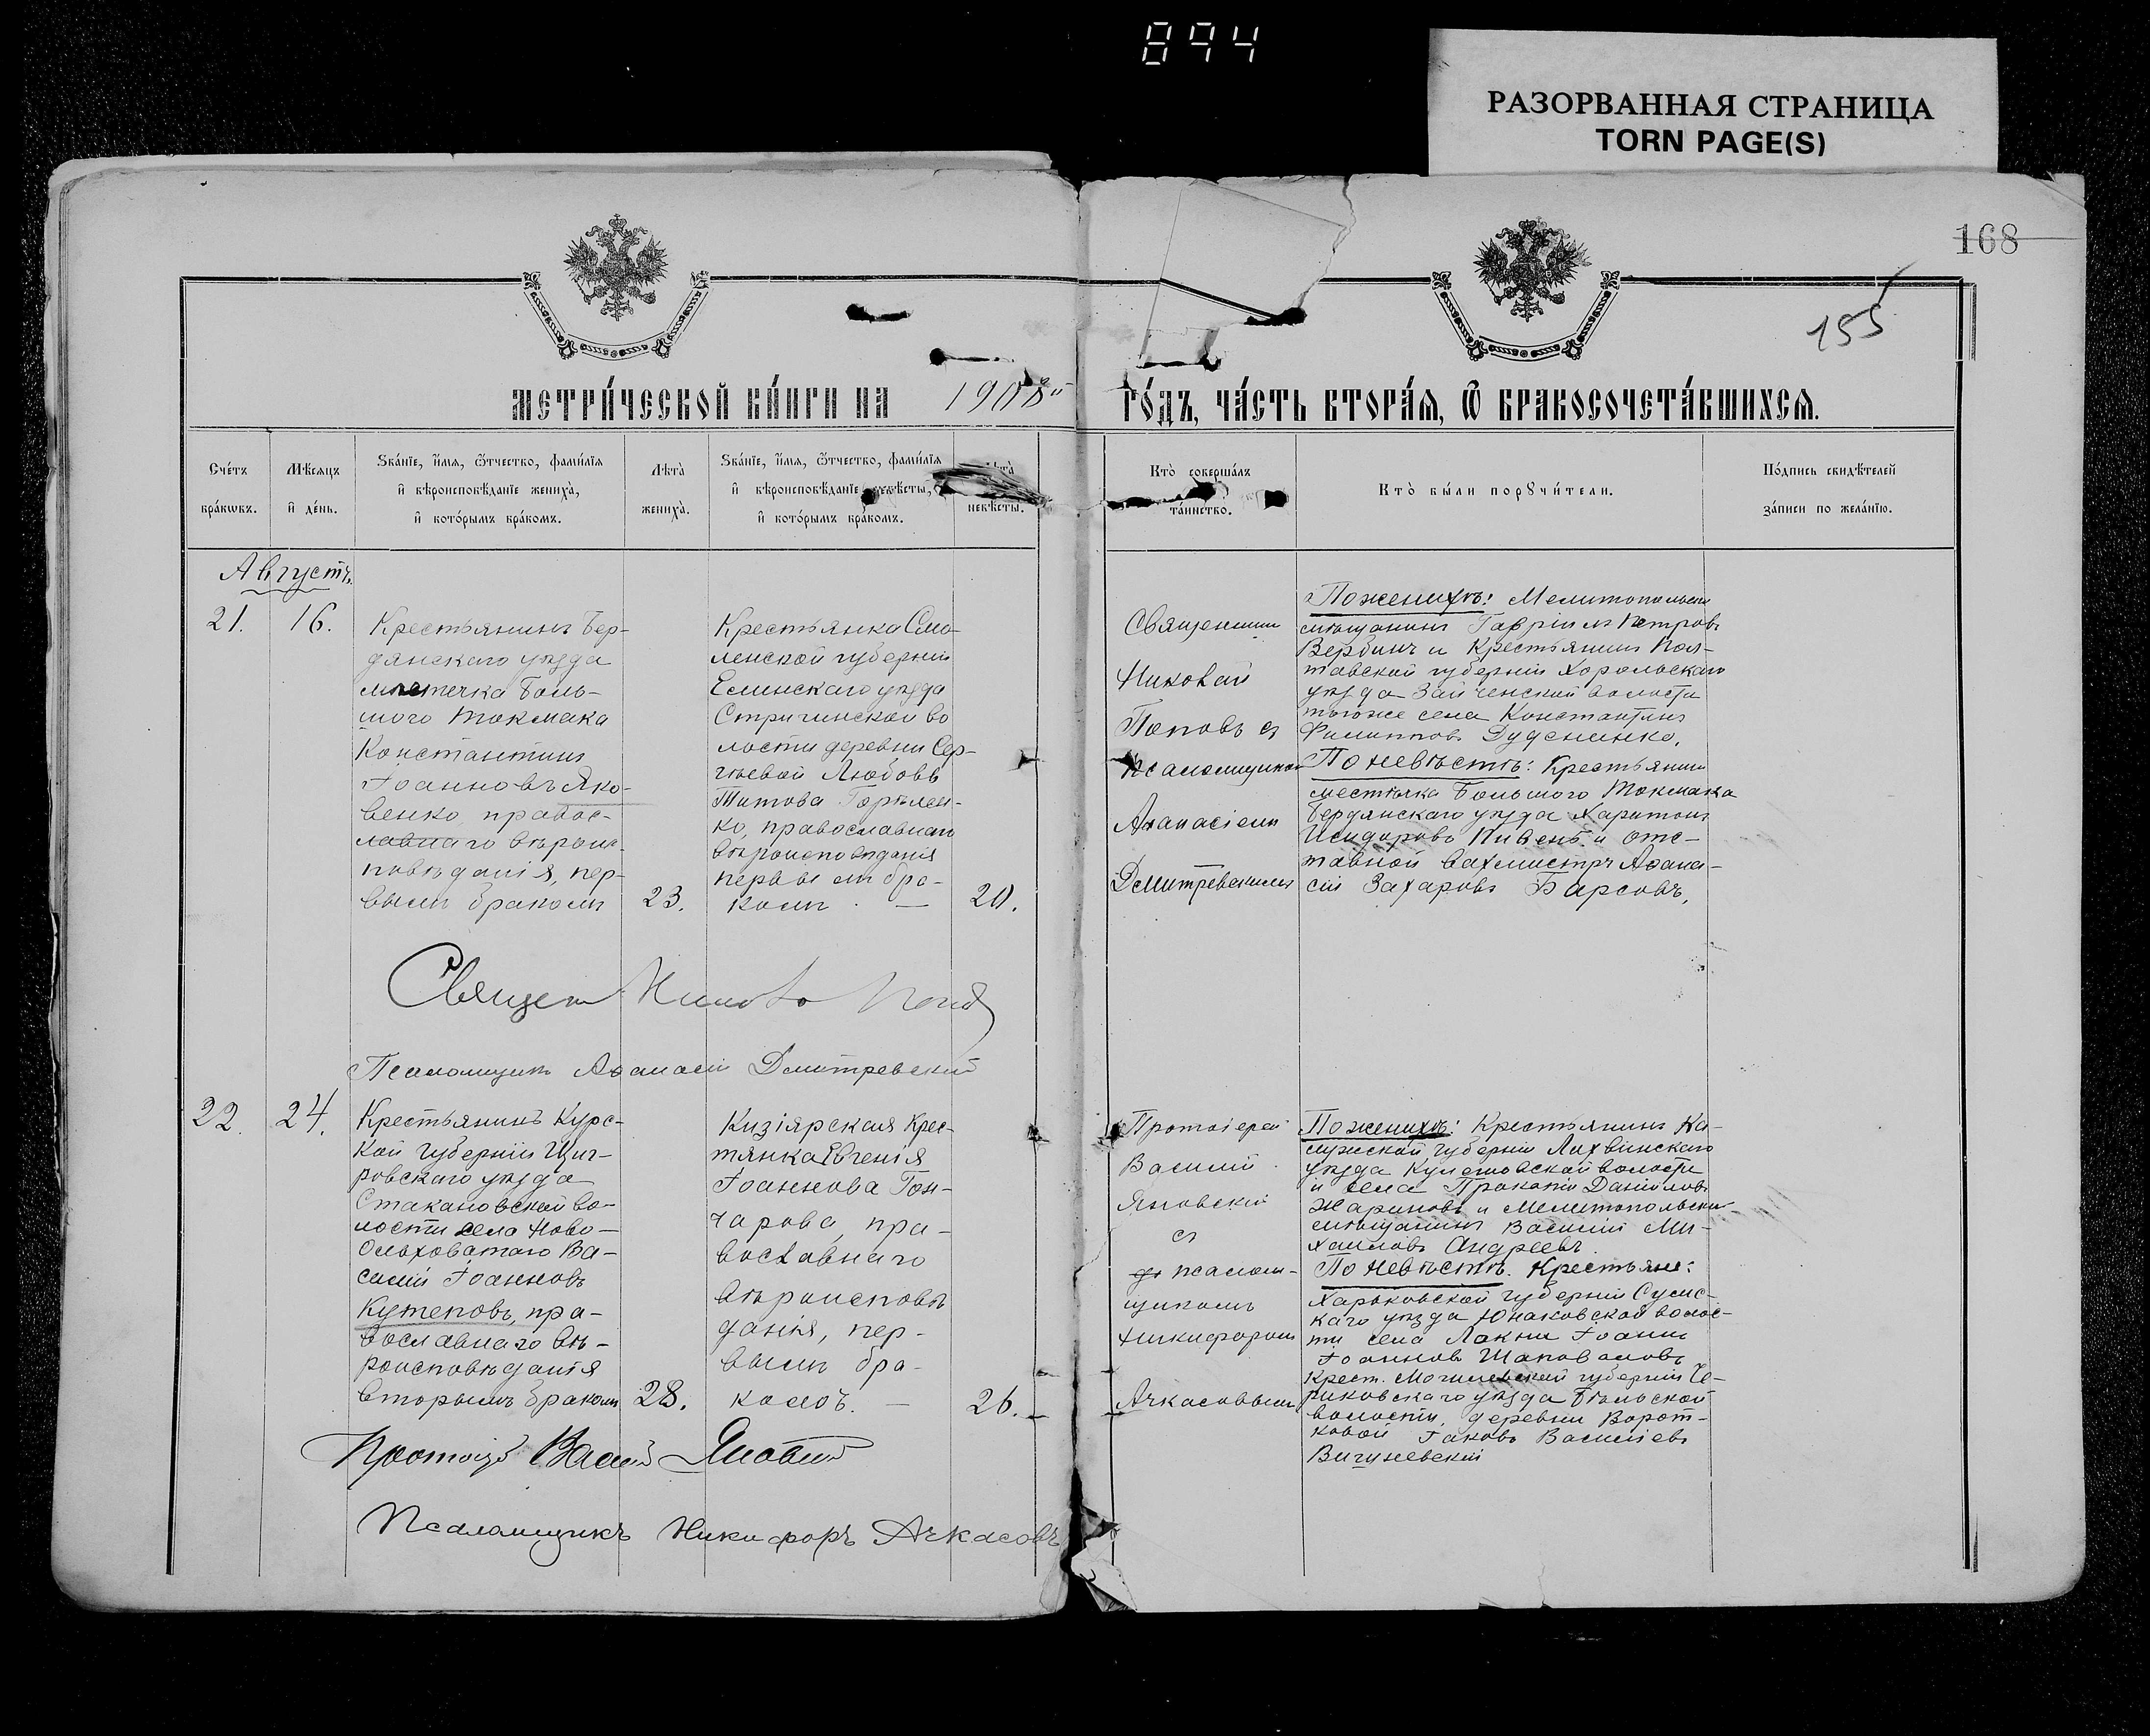 894
РАЗОРВАННАЯ СТРАНИЦА
TORN PAGE(S)
168
155
МЕТРИ́ЧЕСКОЙ КНИ́ГИ НА 1908й ГО́ДЪ, ЧА́СТЬ ВТОРА́Я, Ѿ БРАКОСОЧЕТА́ВШИХСЯ.
Сче́тъ
бра́кωвъ.
Мѣ́сяцъ
и҆ де́нь.
Ѕва́нїе, и҆́мя, ѻ҆́тчество, фами́лїя
и҆ вѣроисповѣ́данїе жениха̀,
и҆ кото́рымъ бра́комъ.
Лѣта̀
жениха̀.
Ѕва́нїе, и҆́мя, ѻ҆́тчество, фами́лїя
и҆ вѣроисповѣ́данїе невѣ́сты,
и҆ кото́рымъ бра́комъ.
Лѣта̀
невѣ́сты.
Кто̀ соверша́лъ
та́инство.
Кто̀ бы́ли порꙋчи́тели.
По́дпись свидѣ́телей
за́писи по жела́нїю.
Августъ.
21.
16.
Крестьянинъ Бер-
дянскаго уѣзда
мѣстечка Боль-
шого Токмака
Константинъ
Іоанновъ Яко-
венко, правос-
лавнаго вѣроис-
повѣданія, пер-
вымъ бракомъ
23.
Крестьянка Смо-
ленской губерніи
Елинскаго уѣзда
Стригинской во
лости деревни Сер-
гѣевой Любовь
Титова Горѣлен-
ко, православнаго
вѣроисповѣданія
первымъ бра-
комъ. —
20.
Священникъ
Николай
Поповъ съ
псаломщикомъ
Аѳанасіемъ
Дмитревскимъ
По женихѣ: Мелитопольскій
мѣщанинъ Гавріилъ Петровъ
Вербинъ и Крестьянинъ Пол-
тавской губерніи Хорольскаго
уѣзда Зайченской волости
тогоже села Константинъ
Филипповъ Дудниченко.
По невѣстѣ: Крестьянинъ
местѣчка Большого Токмака
Бердянскаго уѣзда Харитонъ
Исидоровъ Пивень и отс-
тавной вахмистръ Аѳана-
сій Захаровъ Барсовъ,
Священ Николай Попов
Псаломщикъ Аѳанасій Дмитревскій
22.
24.
Крестьянинъ Курс-
кой губерніи Щиг-
ровскаго уѣзда
Стакановской во-
лости села Ново-
Ольховатаго Ва-
силій Іоанновъ
Кутеповъ, пра-
вославнаго вѣ-
роисповѣданія
вторымъ бракомъ
28.
Кизіярская крес-
тянка Евгенія
Іоаннова Гон-
чарова, пра-
вославнаго
вѣроисповѣ
данія, пер-
вымъ бра-
комъ. —
26.
Протоіерей
Василій
Яновскій
съ
псалом-
щикомъ
Никифоромъ
Ачкасовымъ
По женихѣ: Крестьянинъ Ка-
лужской губерніи Лихвинскаго
уѣзда Кулешовской волости
и села Прокопій Даніиловъ
Жариновъ и Мелитопольскій
мѣщанинъ Василій Ми-
хаиловъ Андреевъ.
По невѣстѣ. Крестьяне:
Харьковской губерніи Сумс-
каго уѣзда Юнаковской волос-
ти села Локни Іоаннъ
Іоанновъ Шаповаловъ
Крест. Могилевской губерніи Че-
риковскаго уѣзда Бѣльской
волости, деревни Ворот-
ковой Іаковъ Василіевъ
Вигуневскій
Протоіер Василій Яновскій
Псаломщикъ Никифоръ Ачкасовъ